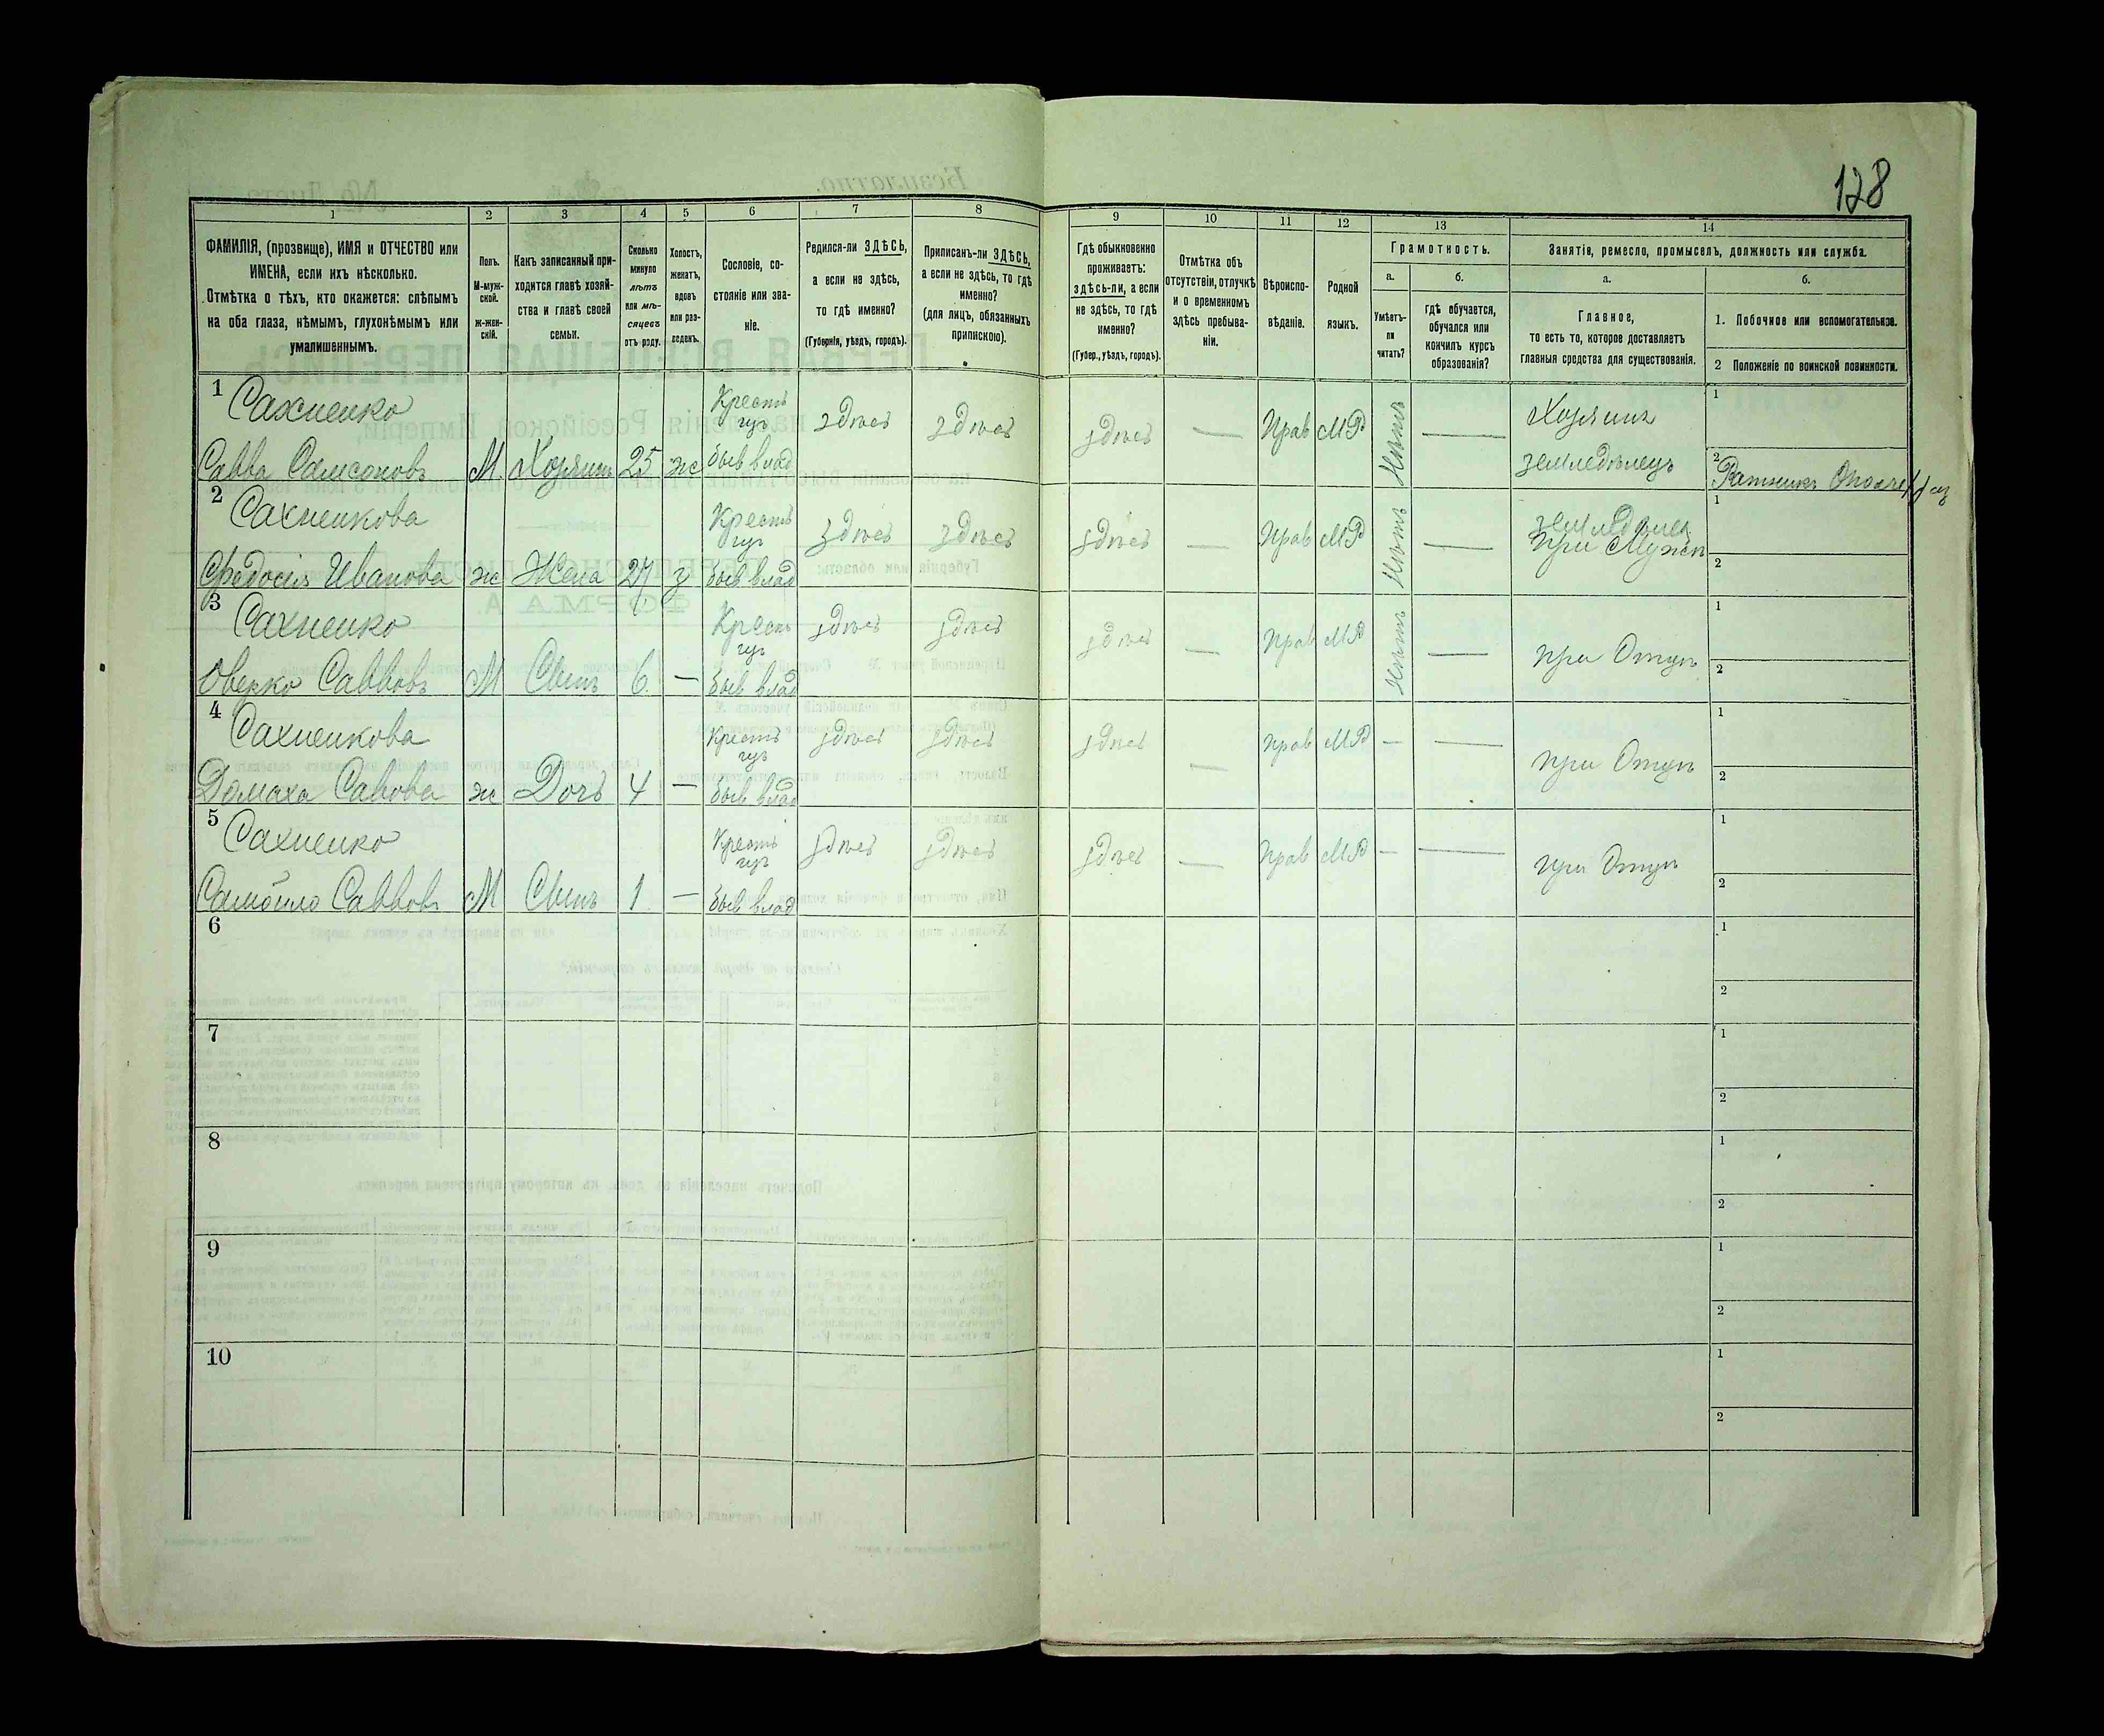 128
1 2 3 4 5 6 7 8 9 10 11 12 13 14
ФАМИЛІЯ, (прозвище), ИМЯ и ОТЧЕСТВО или
ИМЕНА, если ихъ нѣсколько.
Отмѣтка о тѣхъ, кто окажется: слѣпымъ
на оба глаза, нѣмымъ, глухонѣмымъ или
умалишеннымъ.
Полъ.
М-муж-
ской.
ж-жен-
скій.
Какъ записанный при-
ходится главѣ хозяй-
ства и главѣ своей
семьи.
Сколько
минуло
лѣтъ
или мѣ-
сяцевъ
отъ роду.
Холостъ,
женатъ,
вдовъ
или раз-
веденъ.
Сословіе, со-
стояніе или зва-
ніе.
Родился-ли ЗДѢСЬ,
а если не здѣсь,
то гдѣ именно?
(Губернія, уѣздъ, городъ).
Приписанъ-ли ЗДѢСЬ,
а если не здѣсь, то гдѣ
именно?
(для лицъ, обязанныхъ
припискою).
Гдѣ обыкновенно
проживаетъ:
здѣсь-ли, а если
не здѣсь, то гдѣ
именно?
(Губер., уѣздъ, городъ).
Отмѣтка объ
отсутствіи, отлучкѣ
и о временномъ
здѣсь пребыва-
ніи.
Вѣроиспо-
вѣданіе.
Родной
языкъ.
Грамотность.
а.
Умѣетъ-
ли
читать?
б.
гдѣ обучается,
обучался или
кончилъ курсъ
образованія?
Занятіе, ремесло, промыселъ, должность или служба.
а.
Главное,
то есть то, которое доставляетъ
главныя средства для существованія.
б.
1. Побочное или вспомогательное.
2 Положеніе по воинской повинности.
1 Сахненко Крестъ здѣсь здѣсь здѣсь — Прав МР Нѣтъ — Хозяинъ 1
Савва Самсоновъ М. Хозяинъ 25 ж быв влад земледѣлецъ 2 Ратникъ
2 Сахненкова Крестъ здѣсь здѣсь здѣсь — Прав МР Нѣтъ — 1
при Мужѣ
Федосия Иванова ж Жена 27 з быв влад 2
3 Сахненко Крестъ здѣсь здѣсь здѣсь — Прав МР Нѣтъ — при Отцѣ 1
Оверко Саввовъ М Сынъ 6 — быв влад 2
4 Сахненкова Крестъ здѣсь здѣсь здѣсь — Прав МР — — при Отцѣ 1
Домаха Савова ж Дочь 4 — быв влад 2
5 Сахненко Крестъ здѣсь здѣсь здѣсь — Прав МР — — при Отцѣ 1
Самойло Саввовъ М Сынъ 1 — быв влад 2
6 1
2
7 1
2
8 1
2
9 1
2
10 1
2